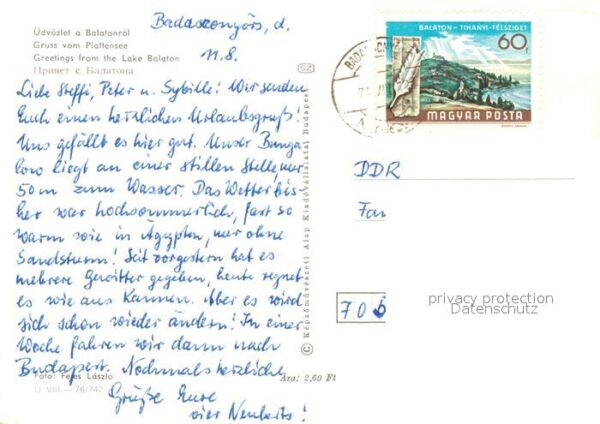 Badacsonyörs, d.
11.8.
Üdvözlet a Balatonról
Gruss vom Plattensee
Greetings from the Lake Balaton
Привет с Балатона
Liebe Steffi, Peter u. Sybille! Wir senden
Euch einen herzlichen Urlaubsgruß!
Uns gefällt es hier gut. Unser Bunga
low liegt an einer stillen Stelle, nur
50m zum Wasser. Das Wetter bis-
her war hochsommerlich, fast so
warm wie in Ägypten, nur ohne
Sandsturm! Seit vorgestern hat es
mehrere Gewitter gegeben, heute regnet
es wie aus Kannen. Aber es wird
sich schon wieder ändern! In einer
Woche fahren wir dann nach
Budapest. Nochmals herzliche
Grüße Eure
vier Neuberts!
Foto: Fejes László
D VIII - 76/742
Ára: 2,60 Ft
© Képzőművészeti Alap Kiadóvállalata, Budapest
CZ
BALATON - TIHANYI-FÉLSZIGET
60f
MAGYAR POSTA
DDR
Fam
705
privacy protection
Datenschutz